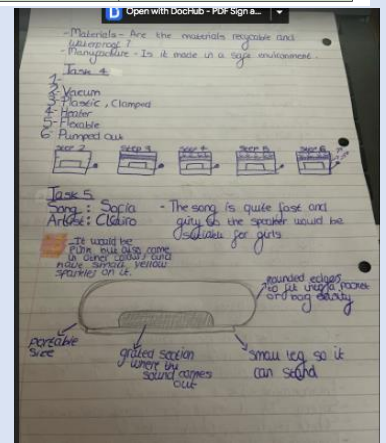 Open with DocHub - PDF Sign a...
- Materials - Are the materials recycable and
waterproof?
- Manufacture - Is it made in a safe environment.
Task 4
1-
2- Vacum
3- Plastic, Clamped
4- Heater
5- Flexable
6- Pumped out
Step 2 Step 3 Step 4 Step 5 Step 6
Task 5
Song : Sofia
Artist: Clairo
- The song is quite fast and
girly so the speaker would be
suitable for girls
- It would be
Pink but also come
in other colours and
have small yellow
sparkles on it.
rounded edges
to fit into a pocket
or bag easily
portable
size
grated section
where the
sound comes
out
small leg so it
can stand